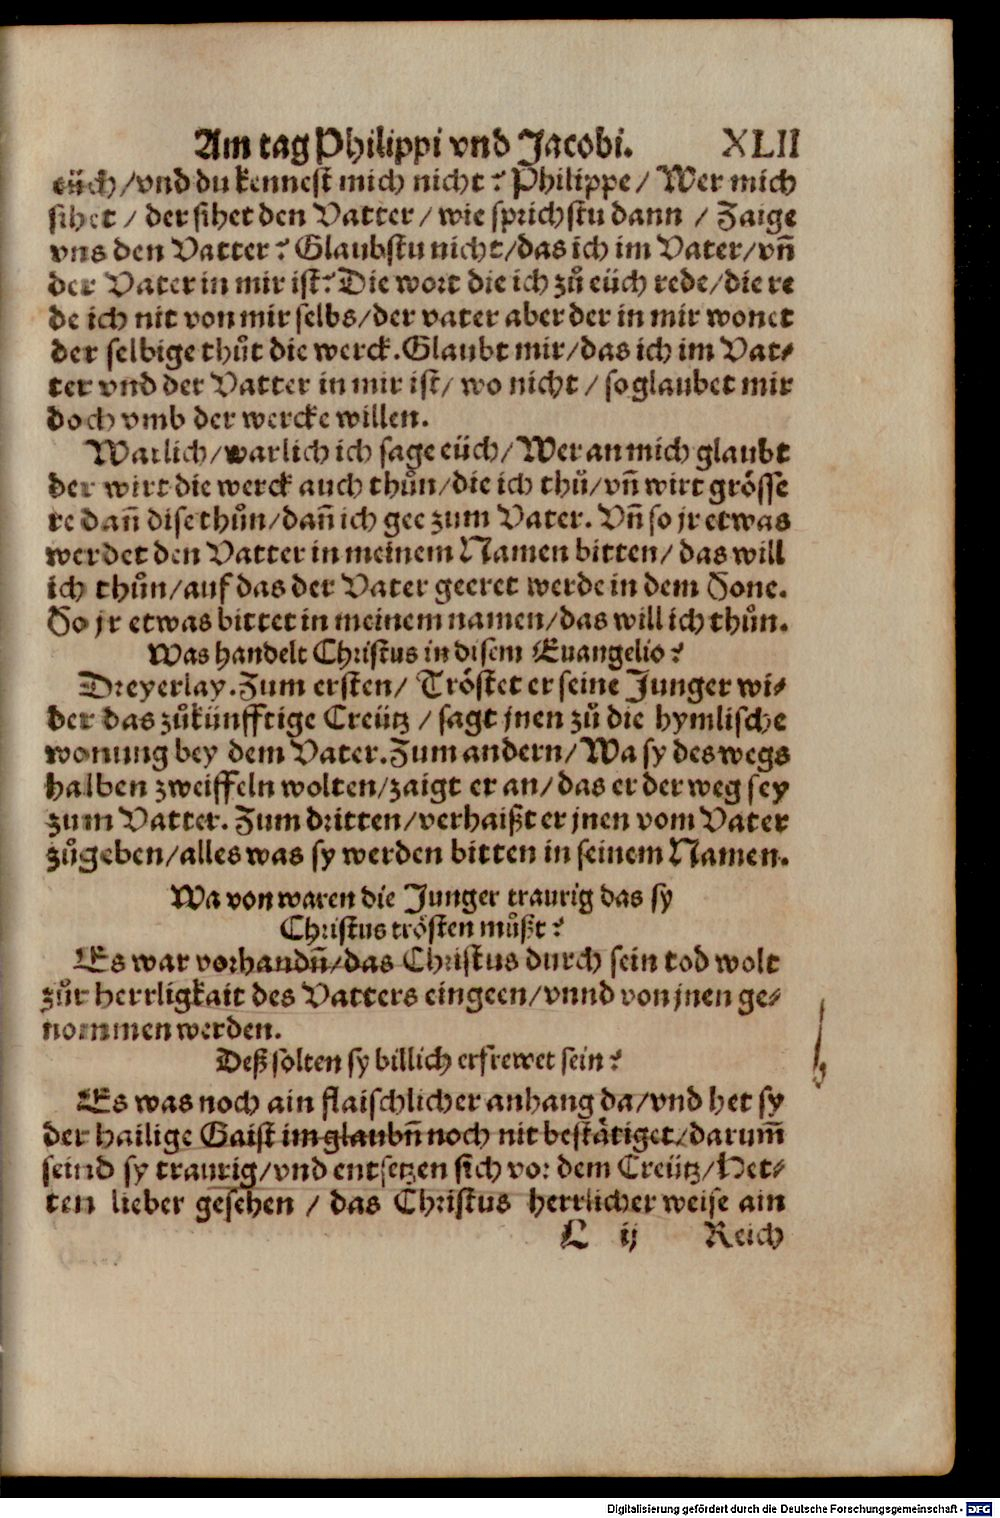 Am tag Philippi vnd Jacobi. XLII
eüch/vnd du kennest mich nicht? Philippe/ Wer mich
sihet / der sihet den Vatter/ wie sprichstu dann / Zaige
vns den Vatter? Glaubstu nicht/das ich im Vater/vñ
der Vater in mir ist? Die wort die ich zů eüch rede/die re
de ich nit von mir selbs/der vater aber der in mir wonet
der selbige thůt die werck. Glaubt mir/das ich im Vat⸗
ter vnd der Vatter in mir ist/ wo nicht / so glaubet mir
doch vmb der wercke willen.
Warlich/warlich ich sage eüch/ Wer an mich glaubt
der wirt die werck auch thůn/die ich thů/vñ wirt grösse
re dañ dise thůn/dañ ich gee zum Vater. Vñ so jr etwas
werdet den Vatter in meinem Namen bitten/ das will
ich thůn/auf das der Vater geeret werde in dem Sone.
So jr etwas bittet in meinem namen/das will ich thůn.
Was handelt Christus in disem Euangelio?
Dreyerlay. Zum ersten/ Tröstet er seine Junger wi⸗
der das zůkünfftige Creütz / sagt jnen zů die hymlische
wonung bey dem Vater. Zum andern/ Wa sy des wegs
halben zweiffeln wolten/zaigt er an/ das er der weg sey
zum Vatter. Zum dritten/verhaißt er jnen vom Vater
zůgeben/alles was sy werden bitten in seinem Namen.
Wa von waren die Junger traurig das sy
Christus trösten můßt?
Es war vorhandñ/das Christus durch sein tod wolt
zůr herrligkait des Vatters eingeen/vnnd von jnen ge⸗
nommen werden.
Deß solten sy billich erfrewet sein?
Es was noch ain flaischlicher anhang da/vnd het sy
der hailige Gaist im glaubñ noch nit bestätiget/darum̃
seind sy traurig/vnd entsetzen sich vor dem Creütz/Het⸗
ten lieber gesehen / das Christus herrlicher weise ain
L ij Reich
Digitalisierung gefördert durch die Deutsche Forschungsgemeinschaft - DFG